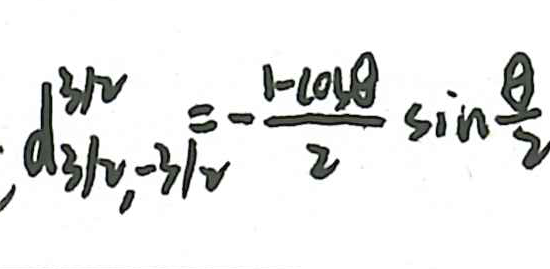 , d^{3/2}_{3/2,-3/2} = -\frac{1-cosθ}{2} sin\frac{θ}{2}